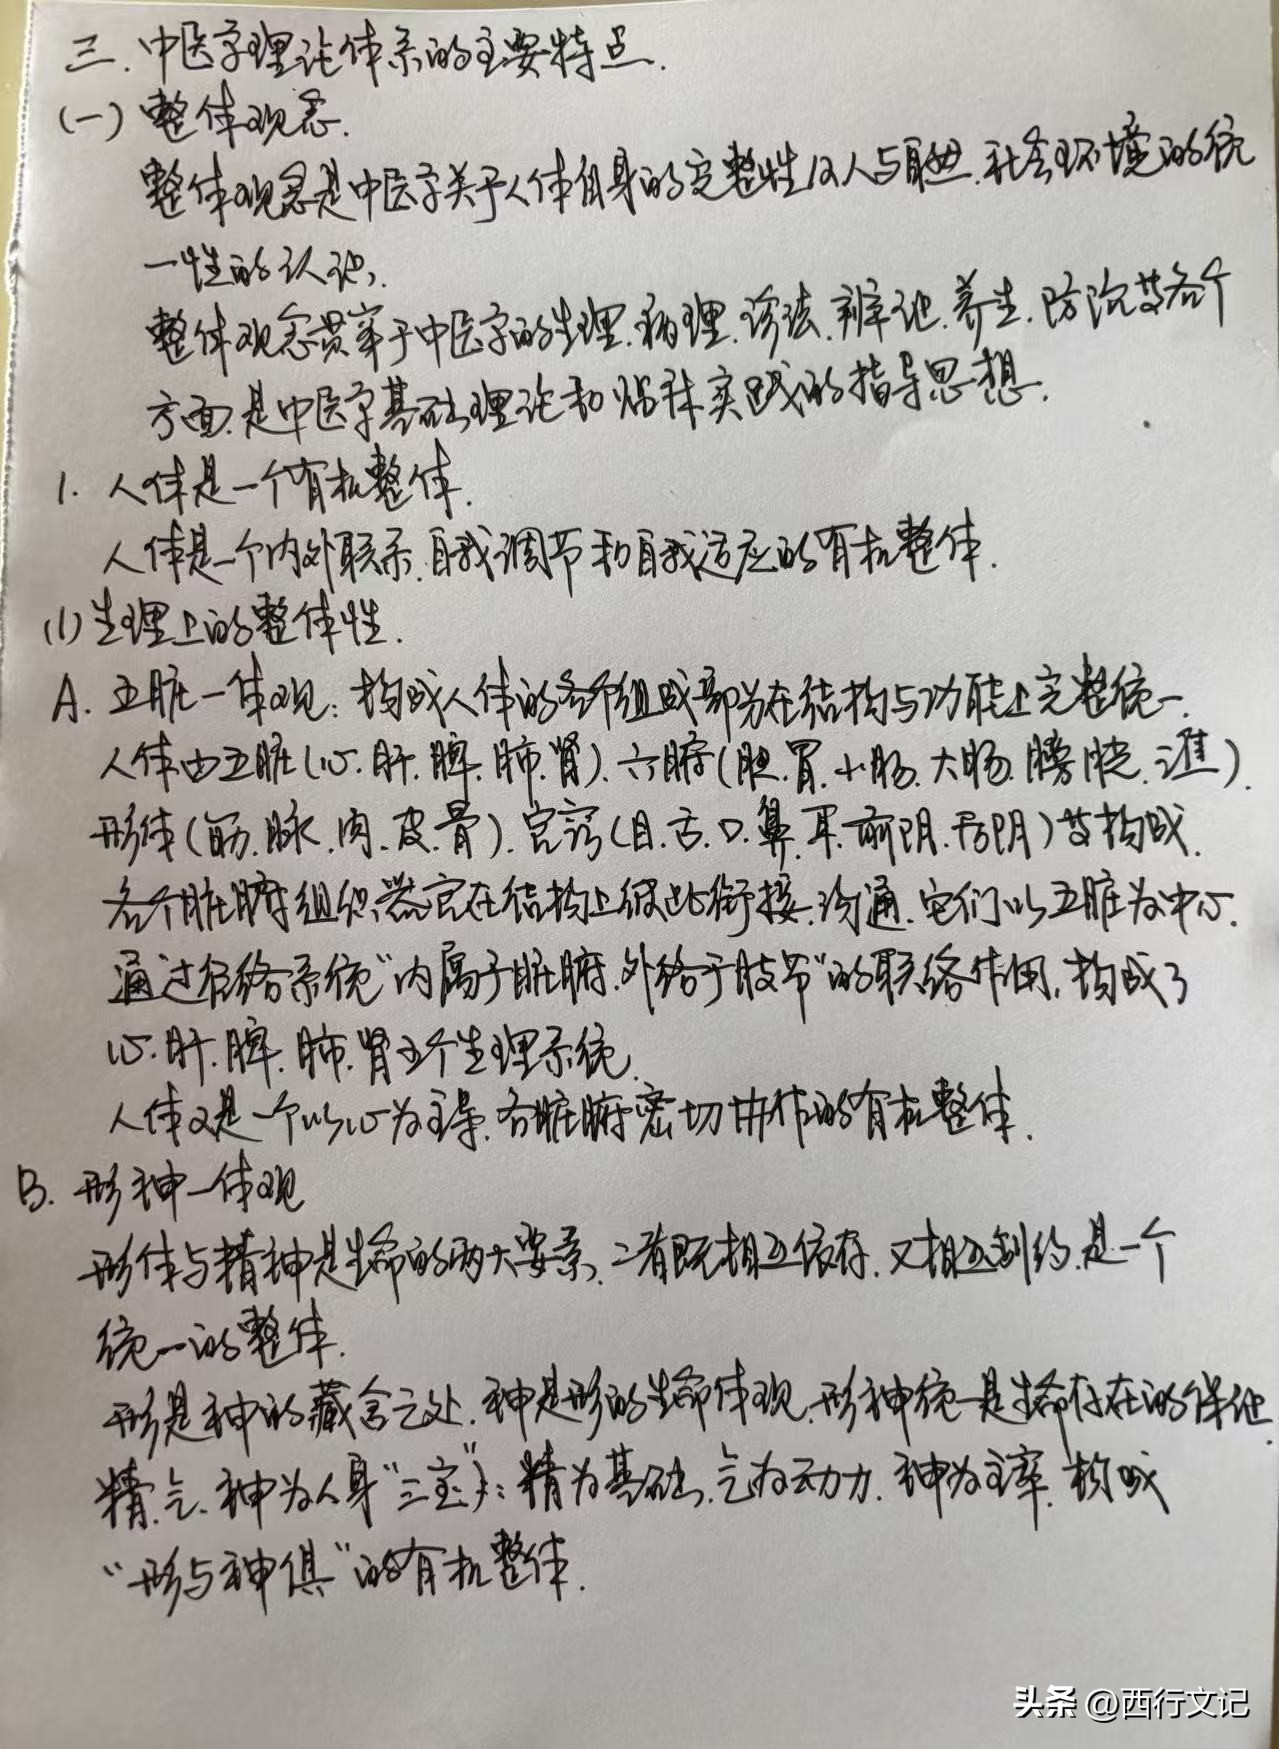 三.中医学理论体系的主要特点.
(一)整体观念.
整体观念是中医学关于人体自身的完整性及人与自然.社会环境的统
一性的认识,
整体观念贯穿于中医学的生理.病理.诊法.辨证.养生.防治等各个
方面.是中医学基础理论和临床实践的指导思想.
1.人体是一个有机整体.
人体是一个内外联系.自我调节和自我适应的有机整体.
(1)生理上的整体性.
A.五脏一体观:构成人体的各个组成部分在结构与功能上完整统一.
人体由五脏(心.肝.脾.肺.肾).六腑(胆.胃.小肠.大肠.膀胱.三焦).
形体(筋.脉.肉.皮.骨).官窍(目.舌.口.鼻.耳.前阴.后阴)等构成.
各个脏腑组织器官在结构上彼此衔接.沟通.它们以五脏为中心.
通过经络系统"内属于脏腑.外络于肢节"的联络作用,构成了
心.肝.脾.肺.肾五个生理系统.
人体又是一个以心为主导.各脏腑密切协作的有机整体.
B.形神一体观
形体与精神是生命的两大要素.二者既相互依存.又相互制约.是一个
统一的整体.
形是神的藏舍之处.神是形的生命体现.形神统一是生命存在的保证.
精.气.神为人身"三宝":精为基础.气为动力.神为主宰.构成
"形与神俱"的有机整体.
头条 @西行文记